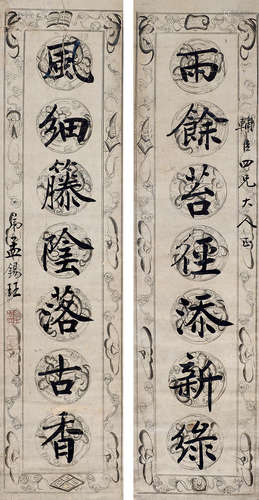 輔臣四兄大人正
雨餘苔徑添新綠
風細籐陰落古香
弟孟錫珏